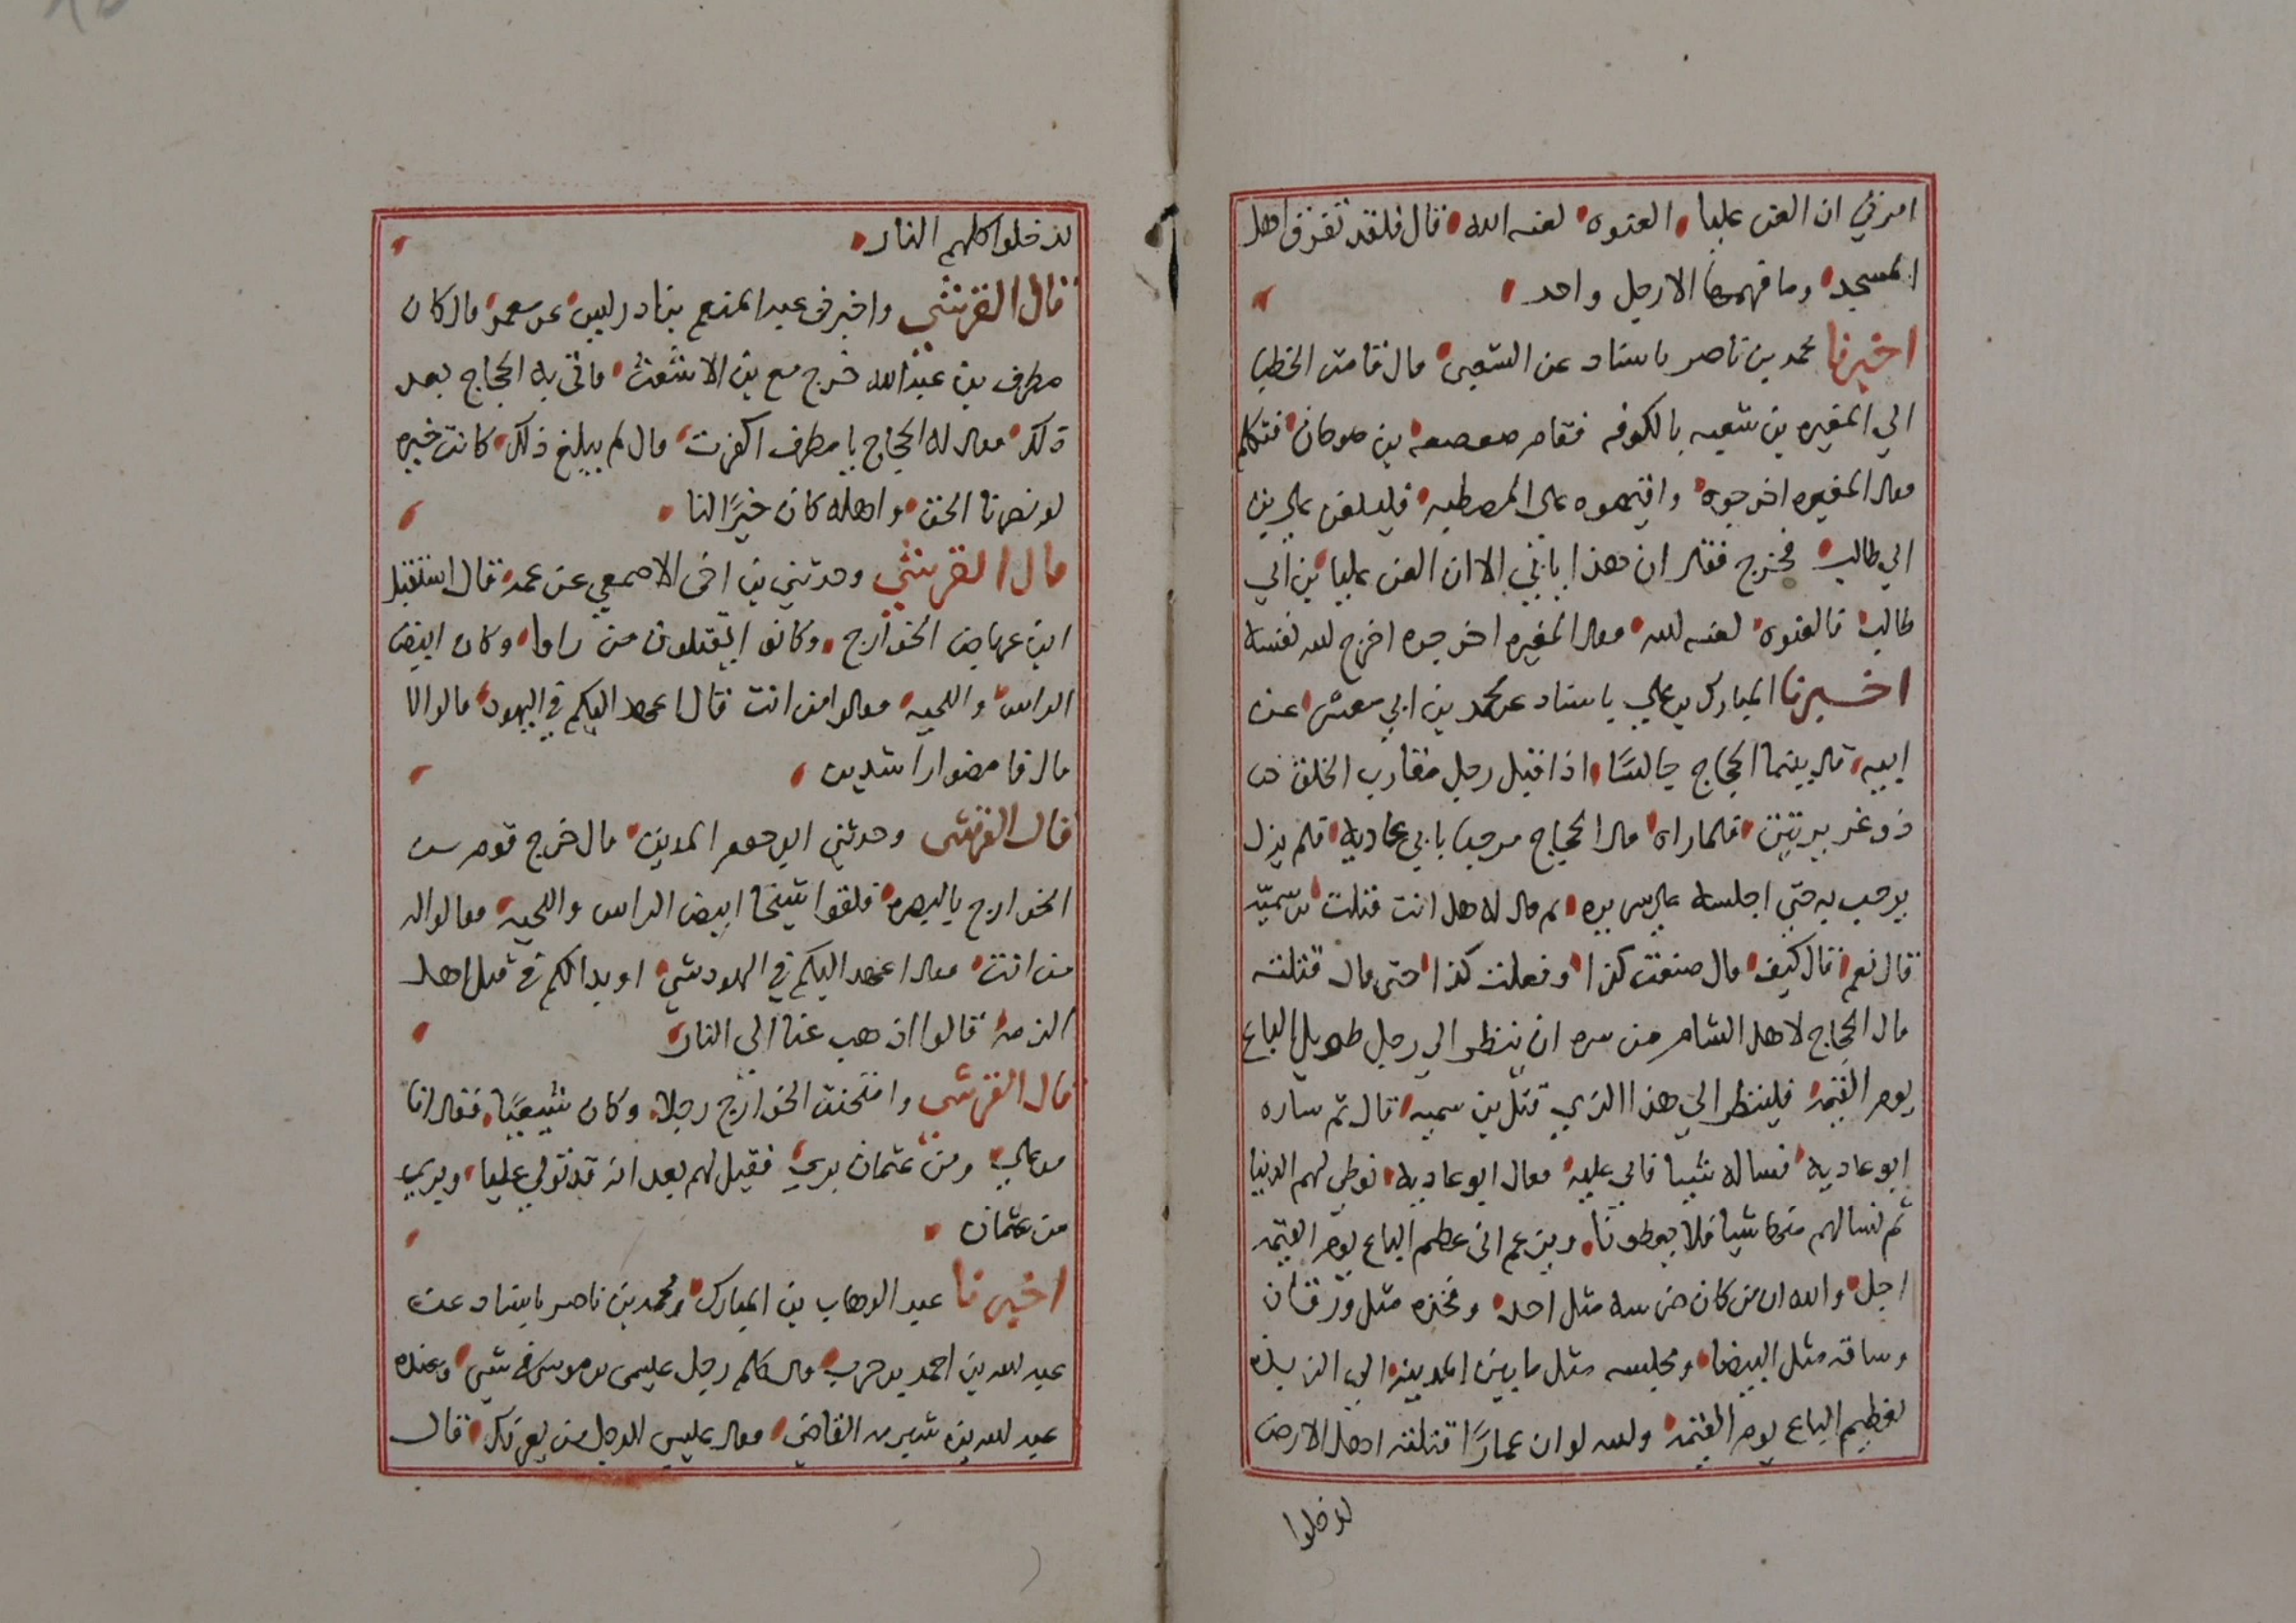 امرني ان العن عليا العنوه لعنه الله قال فلقد تفرق اهل
المسجد وما فهمها الا رجل واحد
اخبرنا محمد بن ناصر باسناد عن الشعبى قال قامت الخطبا
الي المغيره بن شعبه بالكوفه فقام صعصعه بن صوحان فتكلم
فقال المغيره اخرجوه واقيموه على المصطبه فليلعن علي بن
ابي طالب فخرج فقال ان هذا يابي الا ان العن عليا بن ابي
طالب فالعنوه لعنه لله فقال المغيره اخرجوه اخرج لله نفسه
اخبرنا المبارك بن علي باسناد عن محمد بن ابي معشر عن
ابيه قال بينما الحجاج جالسًا اذ اقبل رجل مقارب الخلق
ذو غديرتين فلما راه قال الحجاج مرحبا بابي عاديه فلم يزل
يرحب به حتى اجلسه على سريره ثم قال له هل انت قتلت بن سميّه
قال نعم قال كيف قال صنعت كذا وفعلت كذا حتى قال قتلته
قال الحجاج لاهل الشام من سره ان ينظر الي رجل طويل الباع
يوم القيمه فلينظر الي هذا الذي قتل بن سميه قال ثم ساره
ابو عاديه فساله شيا فابي عليه فقال ابو عاديه نوطي لهم الدنيا
ثم نسالهم منها شيا فلا يعطونا ويزعم انى عظيم الباع يوم القيمه
اجل والله ان من كان ضرسه مثل احد وفخذه مثل ورقان
وساقه مثل البيضا ومجلسه مثل ما بين المدينه الي الزبذه
لعظيم الباع يوم القيمه ولله لو ان عمارًا قتلته اهل الارض
لدخلوا
لدخلوا كلهم النار
قال القرشي واخبرنى عبد المنعم بن ادريس عن معمر قال كان
مطرف بن عبد الله خرج مع بن الاشعث فاتى به الحجاج بعد
ذلك فقال له الحجاج يا مطرف اكفرت قال لم يبلغ ذلك كانت خيره
لو نصرنا الحق واهله كان خيرًا لنا
قال القرشي وحدثني بن اخى الاصمعي عن عمه قال استقبل
ابن عرباض الخوارج وكانوا يقتلون من راوا وكان ابيض
الراس واللحيه فقالوا من انت قال اعهد اليكم في اليهود قالوا لا
قال فامضوا راشدين
قال القرشى وحدثني ابو جعفر المدينى قال خرج قوم من
الخوارج بالبصره فلقوا شيخًا ابيض الراس واللحيه فقالوا له
من انت فقال اعهد اليكم في اليهود شي او بدا لكم في قتل اهل
الذمه قالوا اذهب عنا الى النار
قال القرشى وامتحنت الخوارج رجلا وكان شيعيًا فقال انا
من علي ومن عثمان بري فقيل لهم بعد انه قد تولي عليا وبري
من عثمان
اخبرنا عبد الوهاب بن المبارك ومحمد بن ناصر باسناد عن
عبد لله بن احمد بن حرب قال كلم رجل عيسى بن موسى في شي وعنده
عبد لله بن شبرمه القاضي فقال عيسى للرجل من يعرفك قال